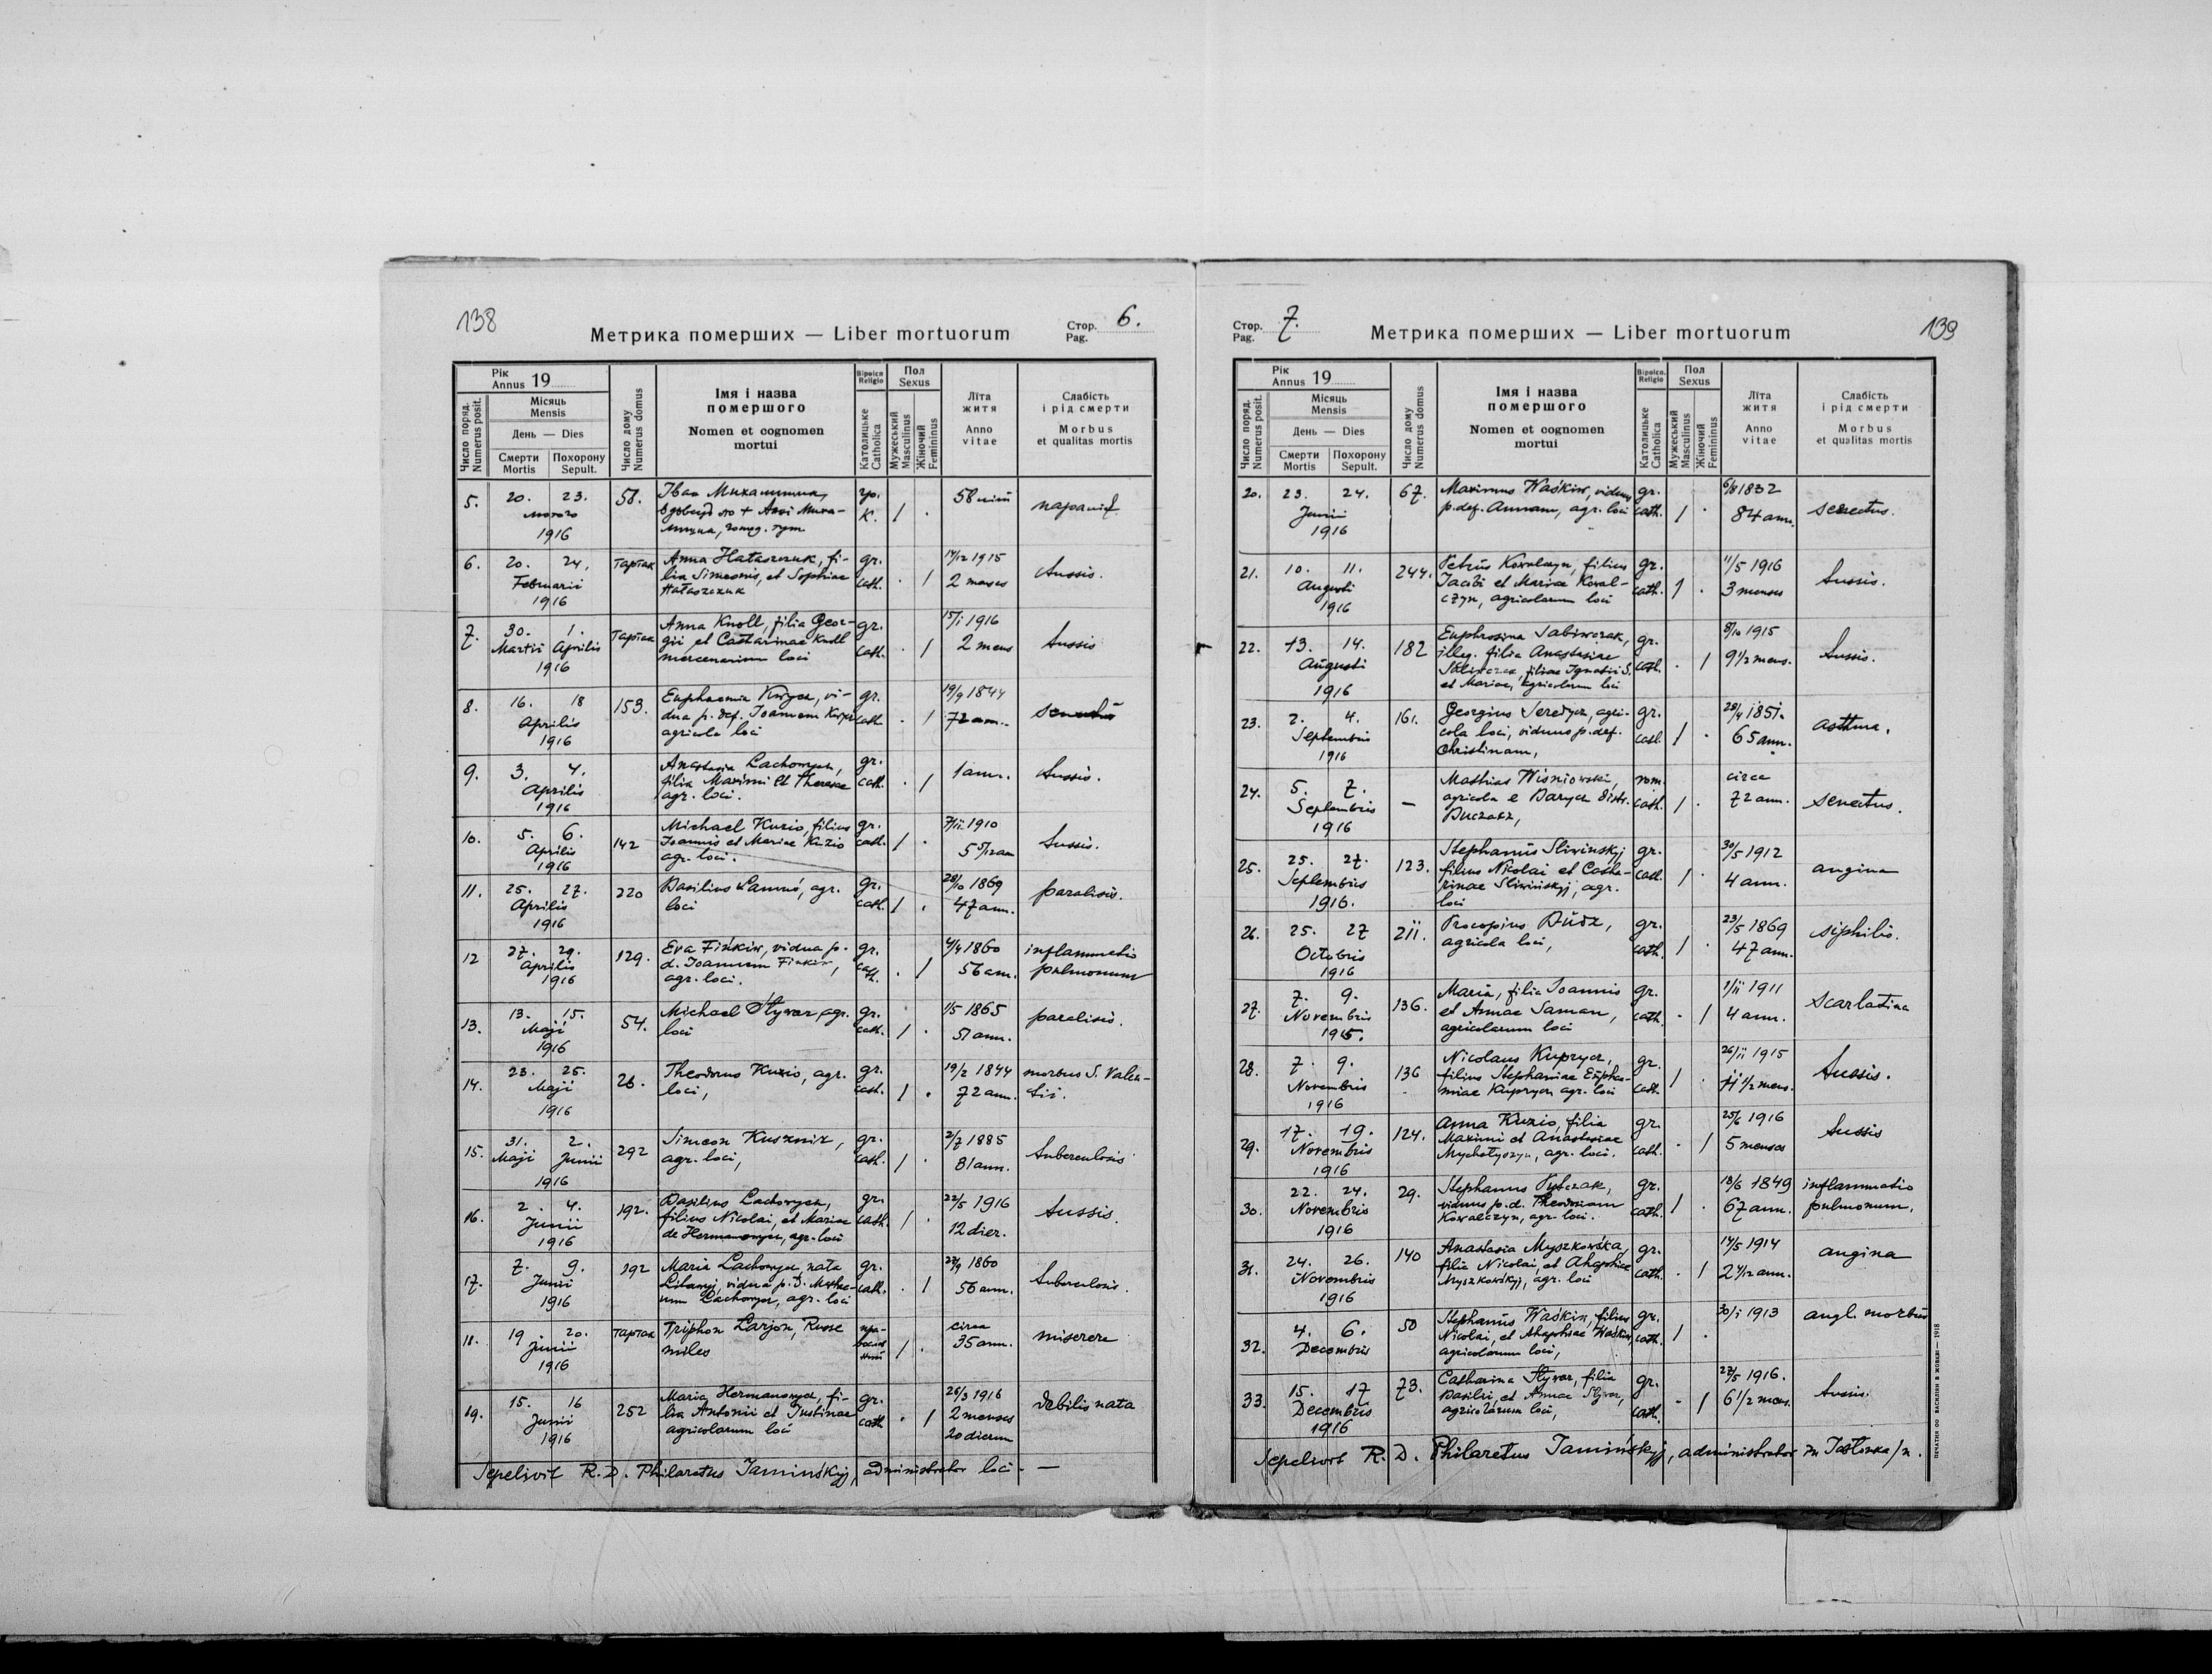 138
Метрика померших — Liber mortuorum
Стор. Pag. 6.
Рік Annus 19
Число поряд. Numerus posit.
Місяць Mensis
День — Dies
Смерти Mortis
Похорону Sepult.
Число дому Numerus domus
Імя і назва помершого
Nomen et cognomen mortui
Віроісп. Religio
Католицьке Catholica
Пол Sexus
Мужеський Masculinus
Жіночий Femininus
Літа житя
Anno vitae
Слабість і рід смерти
Morbus et qualitas mortis
5. 20. 23. 58. Іван гр. 58 літ
лютого к. /
1916
6. 20. 24. Тартак Anna Hałaszczuk, fi- gr. 14/12 1915 tussis.
Februarii lia Simeonis, et Sophiae cath. . / 2 menses
1916 Hałaszczuk
7. 30. 1. Тартак Anna Knoll, filia Geor- gr. 15/1 1916 tussis
Martii Aprilis gii et Catharinae Knoll cath. . / 2 mens
1916 mercenarium loci
8. 16. 18 153. Euphaemia vi- gr. 19/9 1844 senectus
Aprilis dua p. def. Joannem cath. . / 72 ann.
1916 agricola loci
9. 3. 4. Anastasia Lachowycz, gr. 1 ann. tussis.
Aprilis filia Maximi et Theresae cath. . /
1916 agr. loci.
10. 5. 6. 142 Michael Kuzio, filius gr. 7/11 1910 tussis.
Aprilis Joannis et Mariae Kuzio cath. / . 5 5/12 ann
1916 agr. loci.
11. 25. 27. 220 Basilius agr. gr. 28/10 1869 paralisis.
Aprilis loci cath. / . 47 ann.
1916
12 27. 29. 129. Eva Fińkiw, vidua p. gr. 4/4 1860 inflammatio
Aprilis d. Joannem Finkiw, cath. . / 56 ann. pulmonum
1916 agr. loci.
13. 13. 15. 54. Michael Styvar, agr. gr. 1/5 1865 paralisis.
Maji loci cath. / . 51 ann.
1916
14. 23. 25. 26. Theodorus Kuzio, agr. gr. 19/2 1844 morbus S. Valen-
Maji loci, cath. / . 72 ann. tii.
1916
15. 31. 2. 292 Simeon Kusznir, gr. 2/7 1885 tuberculosis
Maji Junii agr. loci, cath. / . 81 ann.
1916
16. 2. 4. 192. Basilius Lachowycz, gr. 22/5 1916 tussis.
Junii filius Nicolai, et Mariae cath. / . 12 dier.
1916 de Hermanowycz, agr. loci
17. 7. 9. 192 Maria Lachowycz, nata gr. 1860 tuberculosis.
Junii vidua p. D. cath. . / 56 ann.
1916 Lachowycz, agr. loci
18. 19 20. Тартак Triphon Larjon, Russe право- circa miserere
Junii miles славний / . 35 ann.
1916
19. 15. 16 252 Maria Hermanowycz, fi- gr. 26/3 1916 debilis nata
Junii lia Antonii et Justinae cath . / 2 menses
1916 agricolarum loci 20 dierum
Sepelivit R. D. Philaretus Tamińskyj, administrator loci. —
Стор. Pag. 7.
Метрика померших — Liber mortuorum
139
Рік Annus 19
Число поряд. Numerus posit.
Місяць Mensis
День — Dies
Смерти Mortis
Похорону Sepult.
Число дому Numerus domus
Імя і назва помершого
Nomen et cognomen mortui
Віроісп. Religio
Католицьке Catholica
Пол Sexus
Мужеський Masculinus
Жіночий Femininus
Літа житя
Anno vitae
Слабість і рід смерти
Morbus et qualitas mortis
20. 23. 24. 67. Maximus Waśkiw, viduus gr. 6/8 1832 senectus.
Junii p. def. Annam, agr. loci cath. / . 84 ann.
1916
21. 10. 11. 244. Petrus Kowalczyn, filius gr. 11/5 1916 tussis.
Augusti Jacobi et Mariae Kowal- cath. / . 3 menses
1916 czyn, agricolarum loci
22. 13. 14. 182 Euphrosina gr. 8/10 1915 tussis.
Augusti illeg. filia Anastasiae cath. . / 9 1/2 mens.
1916 filiae Ignatii S. et Mariae, agricolarum loci
23. 2. 4. 161. Georgius Seredycz, agri- gr. 28/4 1851. asthma.
Septembris cola loci, viduus p. def. cath. / . 65 ann.
1916 Christinam,
24. 5. 7. — Mathias Wiśniowski, rom. circa senectus.
Septembris agricola e Barycz distr. cath. / . 72 ann.
1916 Buczacz,
25. 25. 27. 123. Stephanus Sliwinskyj gr. 30/5 1912 angina
Septembris filius Nicolai et Catha- cath. / . 4 ann.
1916. rinae Sliwińskyj, agr.
loci
26. 25. 27 211. Procopius Dudz, gr. 23/5 1869 siphilis.
Octobris agricola loci, cath. / . 47 ann.
1916
27. 7. 9. 136. Maria, filia Joannis gr. 1/11 1911 scarlatina
Novembris et Annae Saman, cath. . / 4 ann.
agricolarum loci
28. 7. 9. 136 Nicolaus Kuprycz, gr. 26/11 1915 tussis.
Novembris filius Stephani et Eupha- cath. / . 11 1/2 mens.
1916 miae Kuprycz agr. loci
29. 17. 19. 124. Anna Kuzio, filia gr. 25/6 1916 tussis
Novembris Maximi et Anastasiae cath. . / 5 menses
1916 agr. loci.
30. 22. 24. 29. Stephanus gr. 18/6 1849 inflammatio
Novembris viduus p. d. Theodoram cath. / . 67 ann. pulmonum.
1916 Kowalczyn, agr. loci.
31. 24. 26. 140 Anastasia Myszkowśka, gr. 14/5 1914 angina
Novembris filia Nicolai, et Ahaphiae cath. . / 2 ann.
1916 Myszkowśkyj, agr. loci
32. 4. 6. 50 Stephanus Waśkiw, filius gr. 30/1 1913 angl. morbus
Decembris Nicolai, et Ahaphiae Waśkiw, cath. / .
agricolarum loci,
33. 15. 17 73. Catharina Styvar, filia gr. 27/5 1916. tussis
Decembris Basilii, et Annae Styvar, cath. - / 6 1/2 mens.
1916 agricolarum loci,
Sepelivit R. D. Philaretus Tamińskyj, administrator in Jazłowka
ПЕЧАТНЯ ОО ВАСИЛІЯН В ЖОВКВІ — 1918